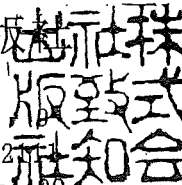 株式会
社致知
出版社